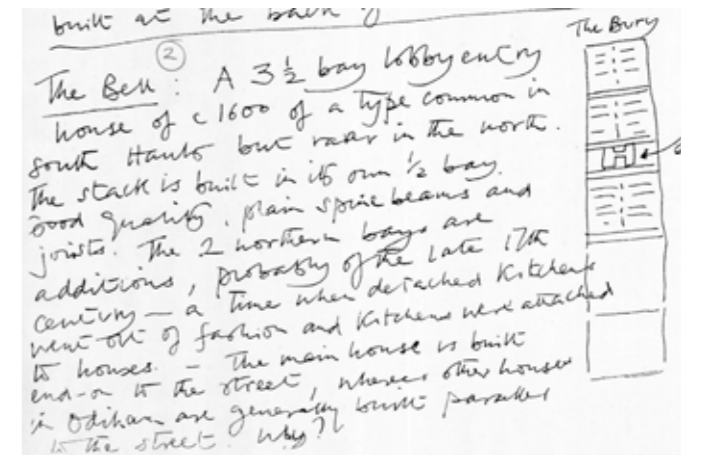 built at the back of
The Bury
②
The Bell : A 3 ½ bay lobby entry
house of c 1600 of a type common in
south Hants but rarer in the north.
The stack is built in its own ½ bay.
Good quality, plain spine beams and
joists. The 2 northern bays are
additions, probably of the late 17th
century — a time when detached Kitchens
went out of fashion and Kitchens were attached
to houses. — The main house is built
end-on to the street, whereas other houses
in Odiham are generally built parallel
to the street. Why?